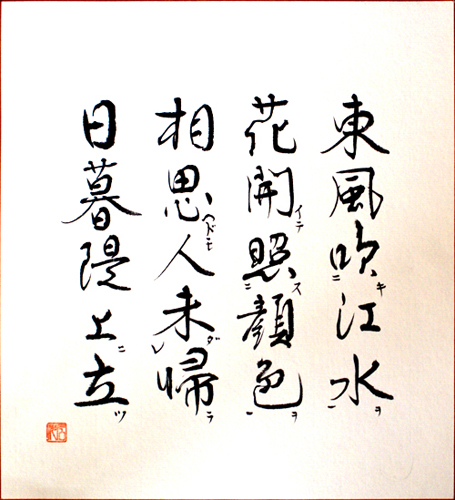 東風吹キ二江水ヲ一
花開イテ照ス二顔色ヲ一
相思ヘドモ人未ダレ帰ラ
日暮隄上ニ立ツ